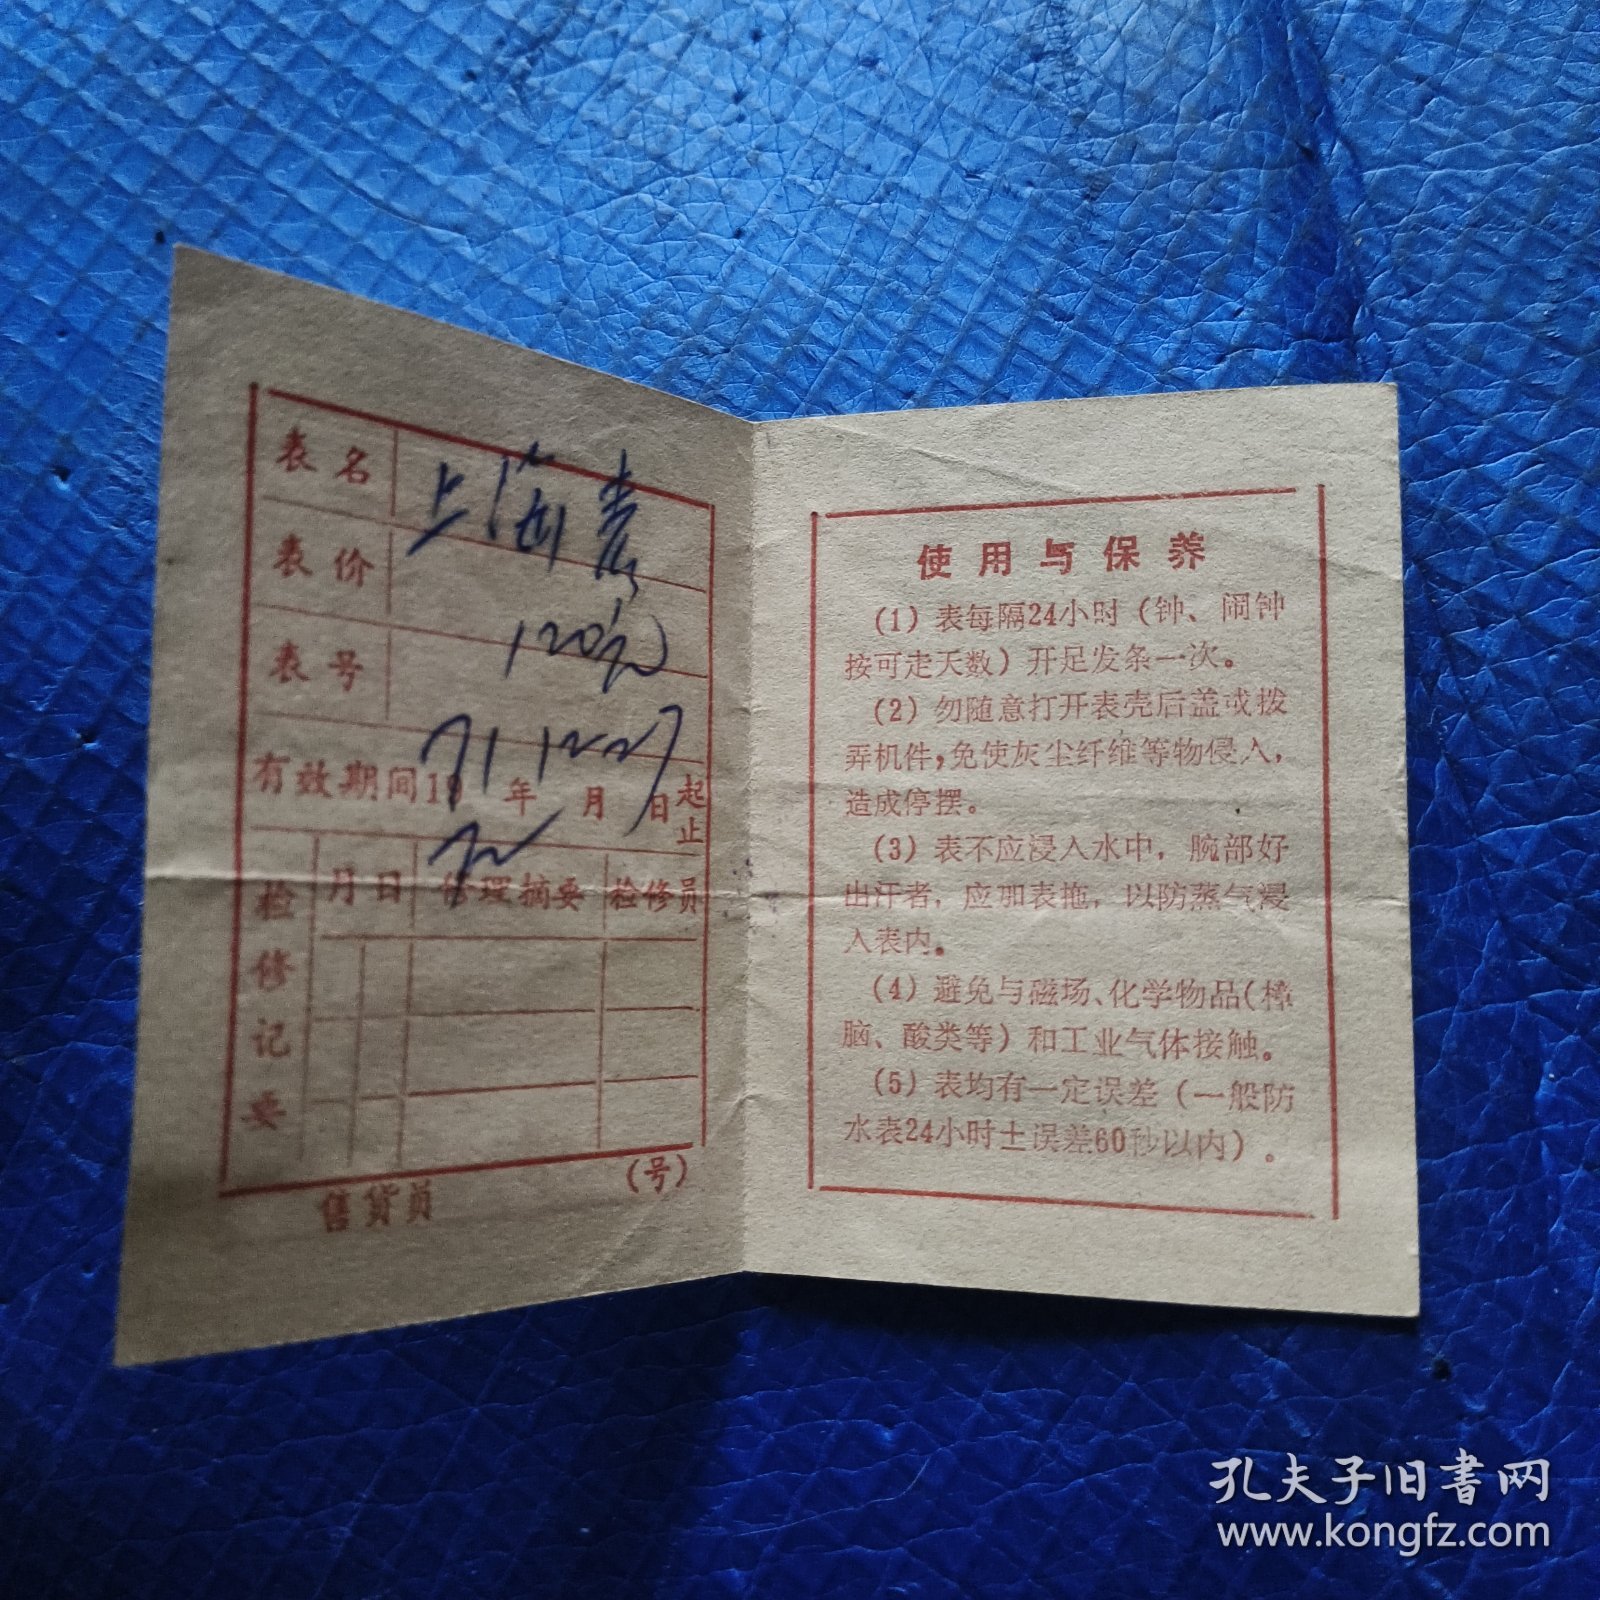 表名 上海表
表价 120元
表号
有效期间19 71 年 12 月 27 日 起
72 止
检修记要 月 日 修理摘要 检修员
售货员 (号)
使用与保养
(1) 表每隔24小时 (钟、闹钟
按可走天数) 开足发条一次。
(2) 勿随意打开表壳后盖或拨
弄机件,免使灰尘纤维等物侵入,
造成停摆。
(3) 表不应浸入水中, 腕部好
出汗者, 应加表拖, 以防蒸气浸
入表内。
(4) 避免与磁场、化学物品(樟
脑、酸类等) 和工业气体接触。
(5) 表均有一定误差 (一般防
水表24小时±误差60秒以内) 。
孔夫子旧书网
www.kongfz.com